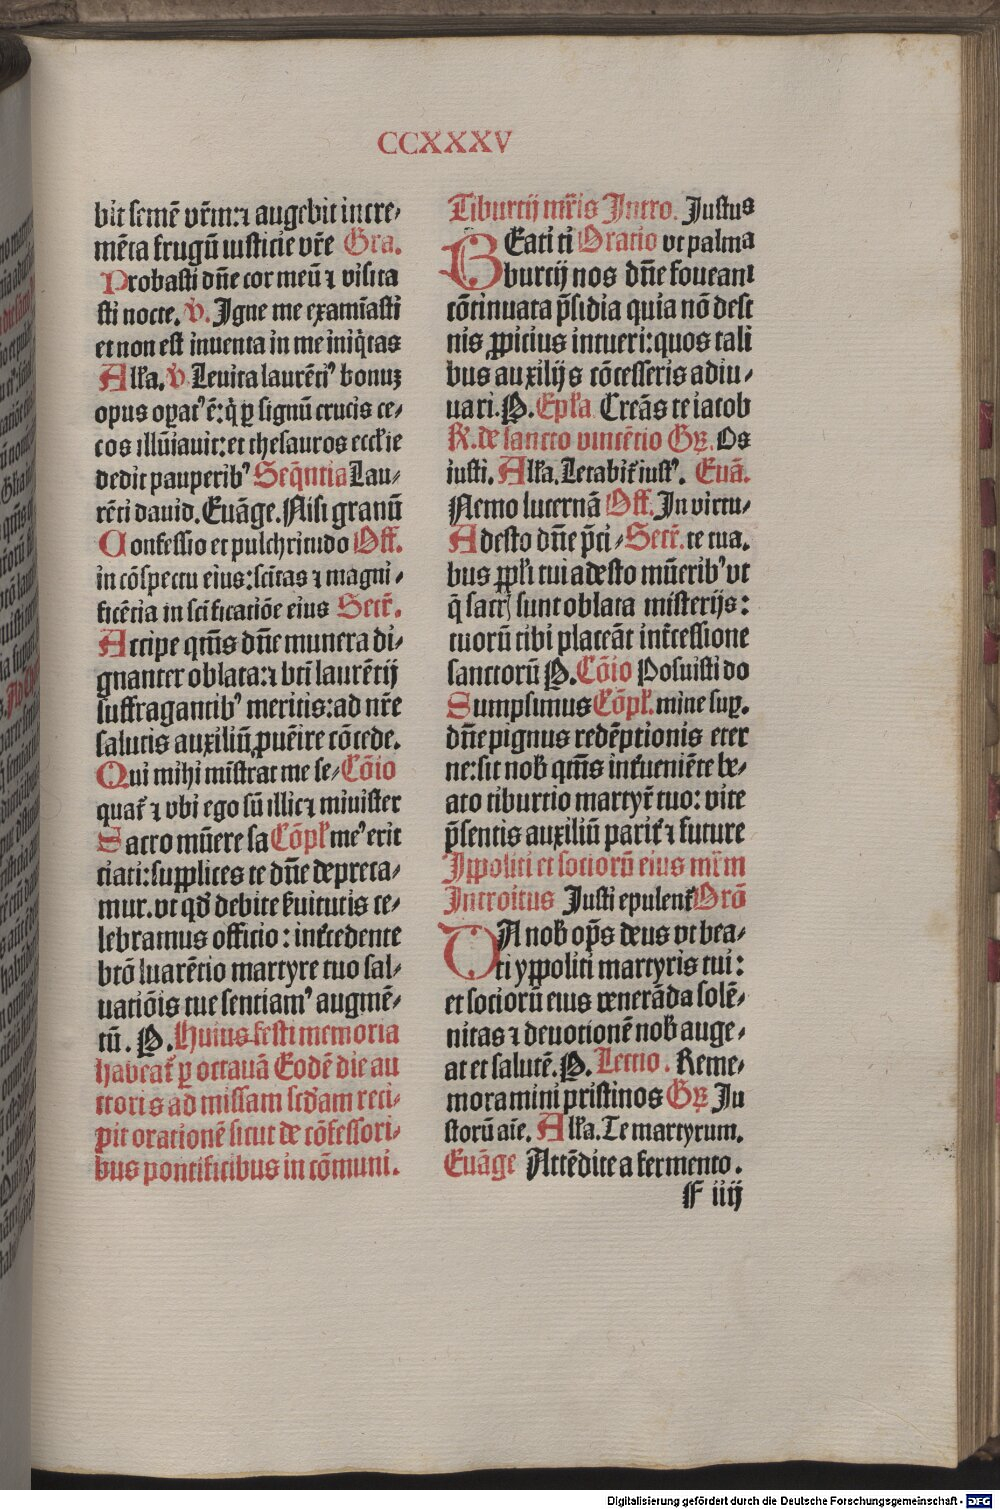 CCXXXV
bit semē vr̄m:⁊ augebit incre⸗
mēta frugū iusticie vr̄e Gra.
Probasti dn̄e cor meū ⁊ visita
sti nocte. V̄. Igne me examīasti
et non est inuenta in me iniq̄tas
Alla. V̄ Leuita laurēti⁹ bonuz
opus oꝑat⁹ ē:q̄ ꝑ signū crucis ce⸗
cos illūīauit:et thesauros eccl'ie
dedit pauperib⁹ Seq̄ntia Lau⸗
rēci dauid. Euāge. Nisi granū
Confessio et pulchritudo Off.
in cōspectu eius:scītas ⁊ magni⸗
ficētia in scīficatiōe eius Secr̄.
Accipe qm̄s dn̄e munera di⸗
gnanter oblata:⁊ bt̄i laurētij
suffragantib⁹ meritis:ad nr̄e
salutis auxiliū ꝓuēire cōcede.
Qui mihi mīstrat me se⸗ Cōio
quat̄ ⁊ vbi ego sū illic ⁊ minister
Sacro mūere sa Cōpl̄ me⁹ erit
ciati:supplices te dn̄e depreca⸗
mur.vt qd̄ debite s̄uitutis ce⸗
lebramus officio : int̄cedente
btō luarētio martyre tuo sal⸗
uatiōis tue sentiam⁹ augmē⸗
tū. P. Huius festi memoria
habeat̄ ꝑ octauā Eodē die au
ctoris ad missam scd̄am reci⸗
pit orationē sicut de cōfessori⸗
bus pontificibus in cōmuni.
Tiburcij mr̄is Intro. Justus
BEati ti Oratio vt palma
burcij nos dn̄e foueant
cōtinuata p̄sidia quia nō desi
nis ꝓpicius intueri:quos tali
bus auxilijs cōcesseris adiu⸗
uari. P. Ep̄la Creās te iacob
R. de sancto vincētio Gr̄. Os
iusti. Alla. Letabit̄ iust⁹. Euā.
Nemo lucernā Off. In virtu⸗
Adesto dn̄e p̄ci⸗ Secr̄. te tua.
bus ppl̄i tui adesto mūerib⁹ vt
q̄ sacr̄ sunt oblata misterijs:
tuorū tibi placeāt int̄cessione
sanctorū P. Cōio Posuisti do
Sumpsimus Cōpl̄. mine suꝑ.
dn̄e pignus redēptionis eter
ne:sit nob̄ qm̄s int̄ueniēte be⸗
ato tiburcio martyr̄ tuo: vite
p̄sentis auxiliū parit̄ ⁊ future
Ippoliti et sociorū eius mr̄m
Introitus Justi epulent̄ Orō
DA nob̄ op̄s deus vt bea⸗
ti yppoliti martyris tui:
et sociorū eius venerāda solē⸗
nitas ⁊ deuotionē nob̄ auge⸗
at et salutē. P. Lectio. Reme⸗
moramini pristinos Gr̄ Ju
storū aīe. Alla. Te martyrum.
Euāge Attēdite a fermento.
F iiij
Digitalisierung gefördert durch die Deutsche Forschungsgemeinschaft - DFG